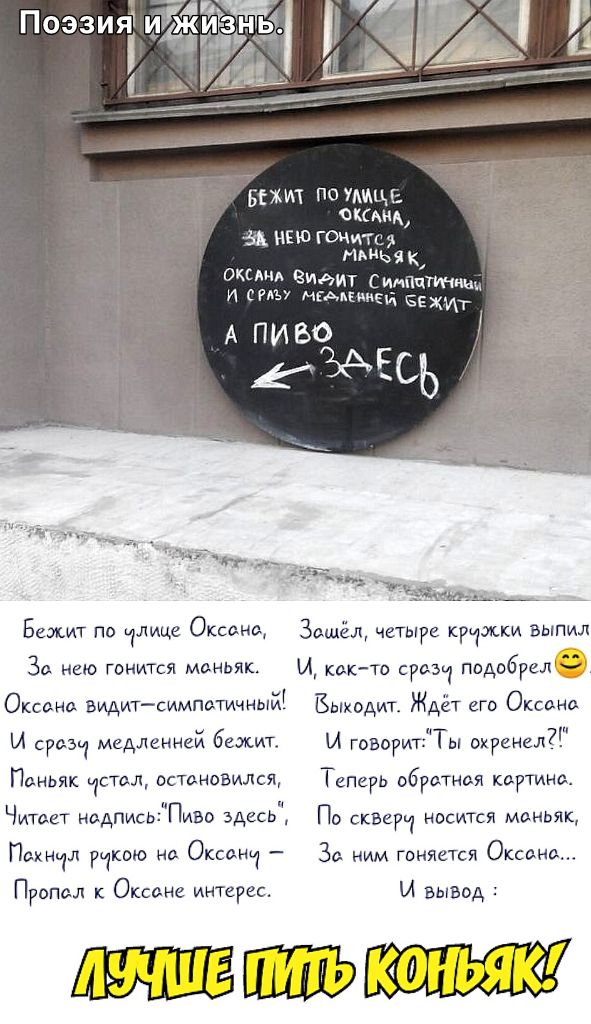 Поэзия и жизнь.
БЕЖИТ ПО УЛИЦЕ
ОКСАНА,
ЗА НЕЮ ГОНИТСЯ
МАНЬЯК,
ОКСАНА ВИДИТ СИМПАТИЧНЫЙ
И СРАЗУ МЕДЛЕННЕЙ БЕЖИТ
А ПИВО
ЗДЕСЬ
Бежит по улице Оксана,
За нею гонится маньяк.
Оксана видит–симпатичный!
И сразу медленней бежит.
Маньяк устал, остановился,
Читает надпись:"Пиво здесь",
Махнул рукою на Оксану –
Пропал к Оксане интерес.
Зашёл, четыре кружки выпил
И, как-то сразу подобрел😊.
Выходит. Ждёт его Оксана
И говорит:"Ты охренел?!"
Теперь обратная картина.
По скверу носится маньяк,
За ним гоняется Оксана...
И вывод :
ЛУЧШЕ ПИТЬ КОНЬЯК!